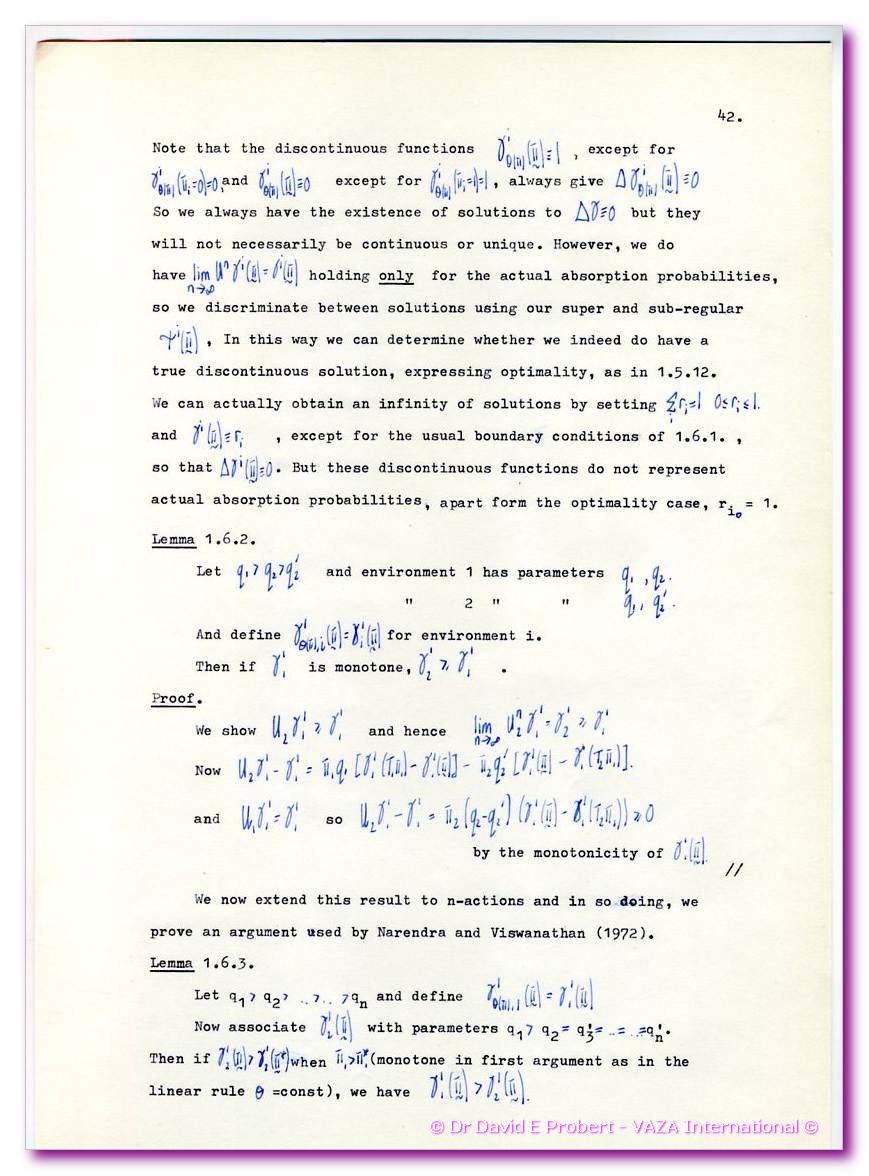 42.
Note that the discontinuous functions γ^i_θ(π)(π)≡1 , except for
γ^i_θ(π)(π_i=0)=0, and γ^i_θ(π)(π)≡0 except for γ^i_θ(π)(π_i=1)=1 , always give Δγ^i_θ(π)(π)≡0
So we always have the existence of solutions to Δγ≡0 but they
will not necessarily be continuous or unique. However, we do
have lim n→∞ U^n γ^i(π)=γ^i(π) holding only for the actual absorption probabilities,
so we discriminate between solutions using our super and sub-regular
ψ^i(π) , In this way we can determine whether we indeed do have a
true discontinuous solution, expressing optimality, as in 1.5.12.
We can actually obtain an infinity of solutions by setting Σ_i r_i=1 0≤r_i≤1.
and γ^i(π)≡r_i , except for the usual boundary conditions of 1.6.1. ,
so that Δγ^i(π)≡0. But these discontinuous functions do not represent
actual absorption probabilities, apart form the optimality case, r_i₀ = 1.
Lemma 1.6.2.
Let q₁>q₂>q₂' and environment 1 has parameters q₁ , q₂.
" 2 " " q₁, q₂'.
And define γ^1_θ(π),i(π)=γ^1_i(π) for environment i.
Then if γ^1_1 is monotone, γ^1_2 ≥ γ^1_1 .
Proof.
We show U₂γ^1_1 ≥ γ^1_1 and hence lim n→∞ U₂^n γ^1_1 = γ^1_2 ≥ γ^1_1
Now U₂γ^1_1 - γ^1_1 = π₁q₁[γ^1_1(T₁π₁) - γ^1_1(π)] - π₂q₂'[γ^1_1(π) - γ^1_1(T₂π₁)].
and U₁γ^1_1=γ^1_1 so U₂γ^1_1 - γ^1_1 = π₂(q₂-q₂')(γ^1_1(π) - γ^1_1(T₂π₁)) ≥ 0
by the monotonicity of γ^1_1(π).
//
We now extend this result to n-actions and in so doing, we
prove an argument used by Narendra and Viswanathan (1972).
Lemma 1.6.3.
Let q₁> q₂> ..>.. >qn and define γ^1_θ(π),1(π) = γ^1_1(π)
Now associate γ^1_2(π) with parameters q₁> q₂= q₃'= ..= ..=qn'.
Then if γ^1_2(π)>γ^1_2(π*)when π₁>π₁*(monotone in first argument as in the
linear rule θ =const), we have γ^1_1(π) >γ^1_2(π).
© Dr David E Probert – VAZA International ©